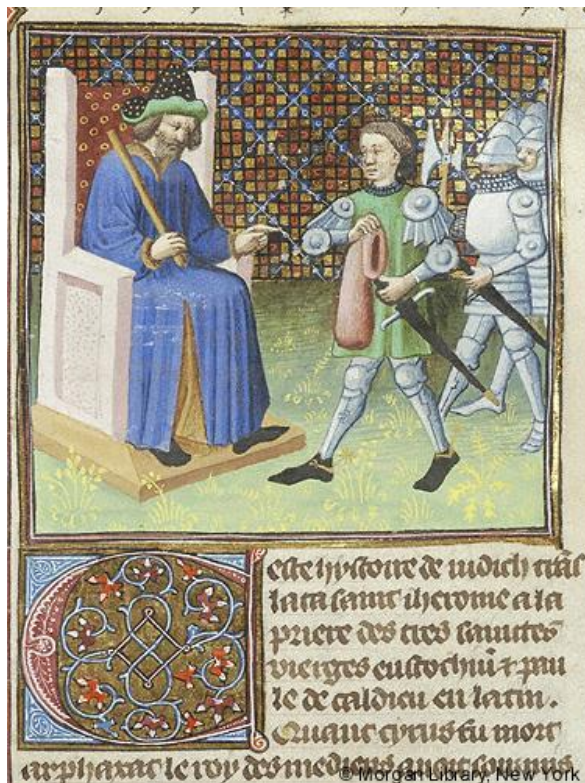 Ceste hystoire de iudich trãs
lata saint iherome a la
priere des tres saintes
vierges eustochiũ ⁊ pau
le de caldieu en latin.
Quant cyrus fu mort
arphaxat le roy des mediens auoit
© Morgan Library, New York